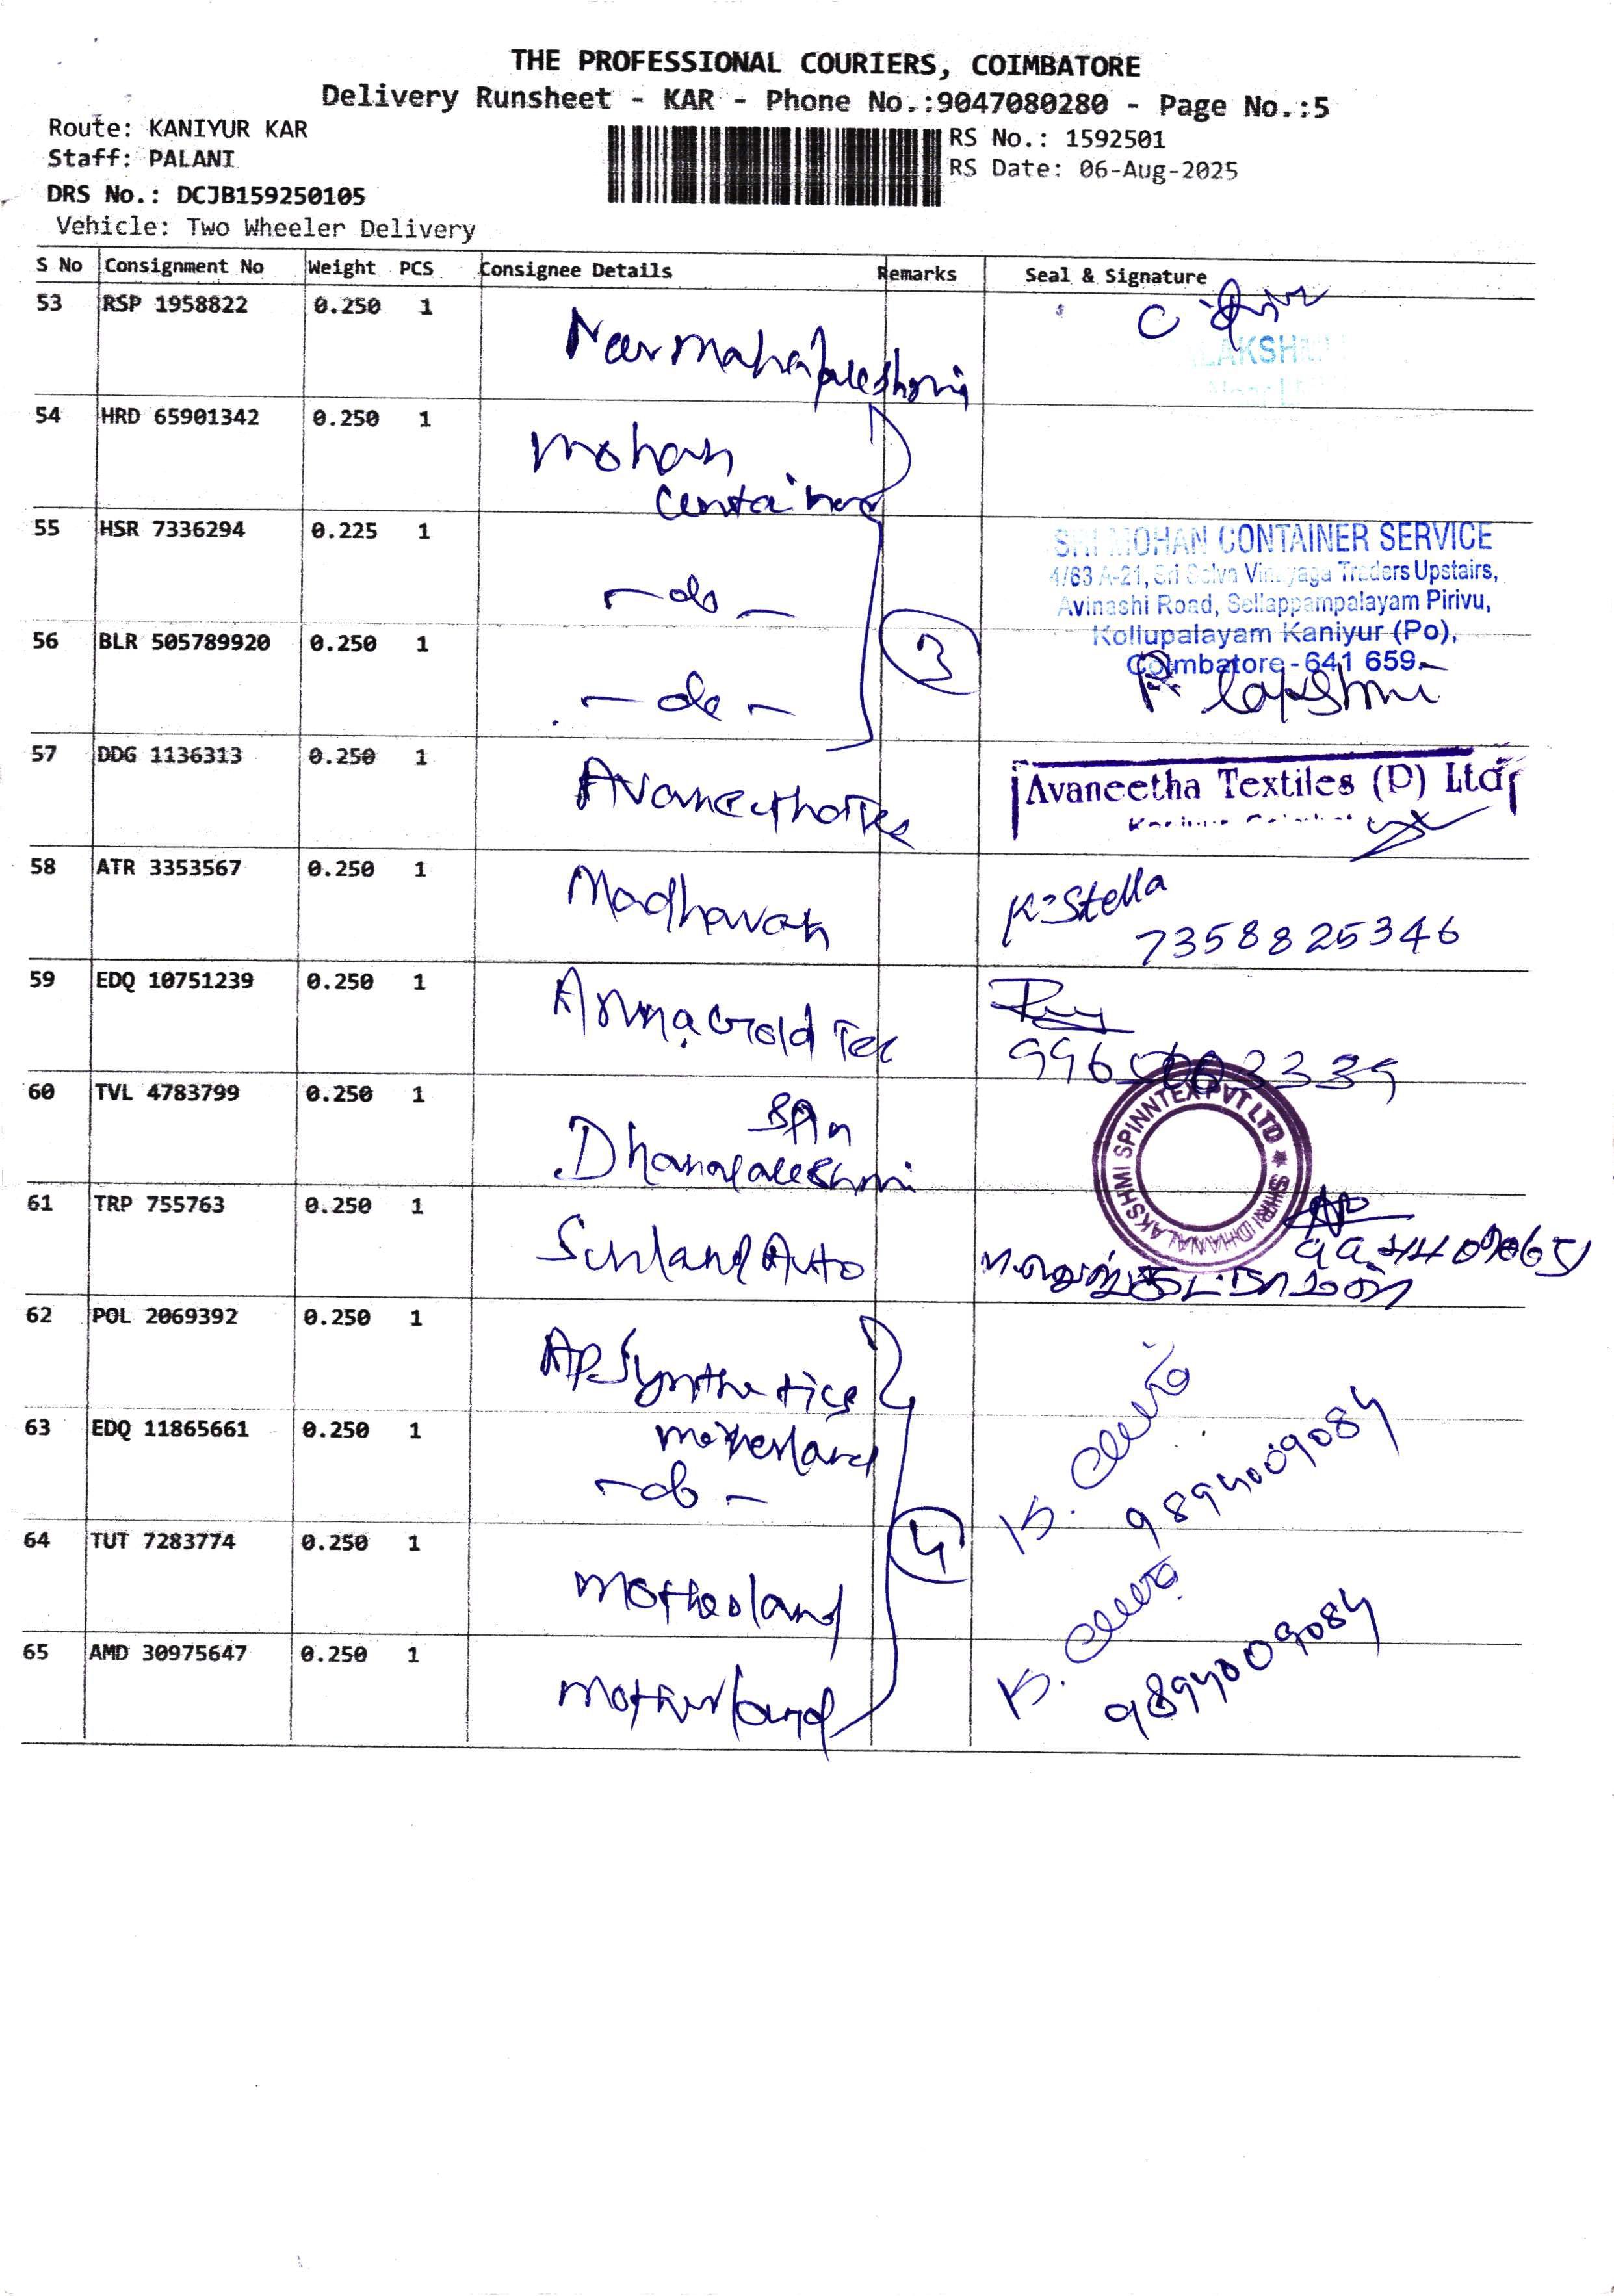 THE PROFESSIONAL COURIERS, COIMBATORE
Delivery Runsheet - KAR - Phone No.:9047080280 - Page No.:5
Route: KANIYUR KAR
Staff: PALANI
DRS No.: DCJB159250105
Vehicle: Two Wheeler Delivery
RS No.: 1592501
RS Date: 06-Aug-2025
S No Consignment No Weight PCS Consignee Details Remarks Seal & Signature
53 RSP 1958822 0.250 1
LAKSH
54 HRD 65901342 0.250 1 Mohan
Container
55 HSR 7336294 0.225 1 -do-
SRI MOHAN CONTAINER SERVICE
4/63 A-21, Sri Selva Vinayaga Traders Upstairs,
Avinashi Road, Sellappampalayam Pirivu,
Kollupalayam Kaniyur (Po),
Coimbatore - 641 659.
56 BLR 505789920 0.250 1 -do- 3 P. Lakshmi
57 DDG 1136313 0.250 1 Avaneetha Tex
Avaneetha Textiles (P) Ltd
58 ATR 3353567 0.250 1 Madhavan K. Stella
7358825346
59 EDQ 10751239 0.250 1 Anna Gold Tex
60 TVL 4783799 0.250 1 Spn
Dhanalakshmi
SHRI DHANALAKSHMI SPINNTEX PVT LTD
61 TRP 755763 0.250 1 Sunland Auto
62 POL 2069392 0.250 1 AP Synthetics
63 EDQ 11865661 0.250 1 Motherland
-do-
9894009084
64 TUT 7283774 0.250 1 Motherland 4
65 AMD 30975647 0.250 1 Motherland
9894009084